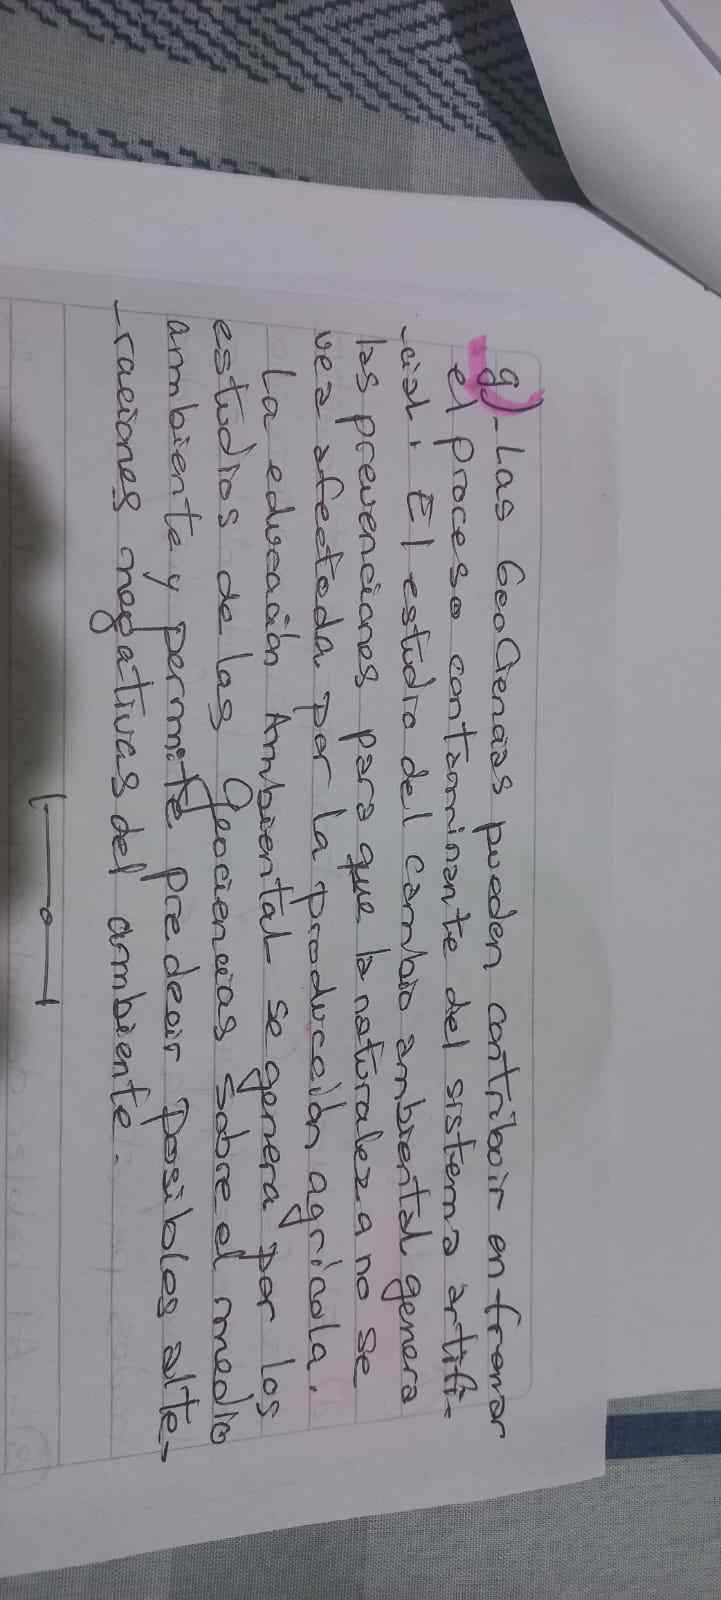 g)- Las GeoCiencias pueden contribuir en frenar
el proceso contaminante del sistema artifi-
-cial. El estudio del cambio ambiental genera
las prevenciones para que la naturaleza no se
vea afectada por la producción agrícola.
La educación Ambiental se genera por los
estudios de las geociencias sobre el medio
ambiente y permite predecir posibles alte-
-raciones negativas del ambiente.